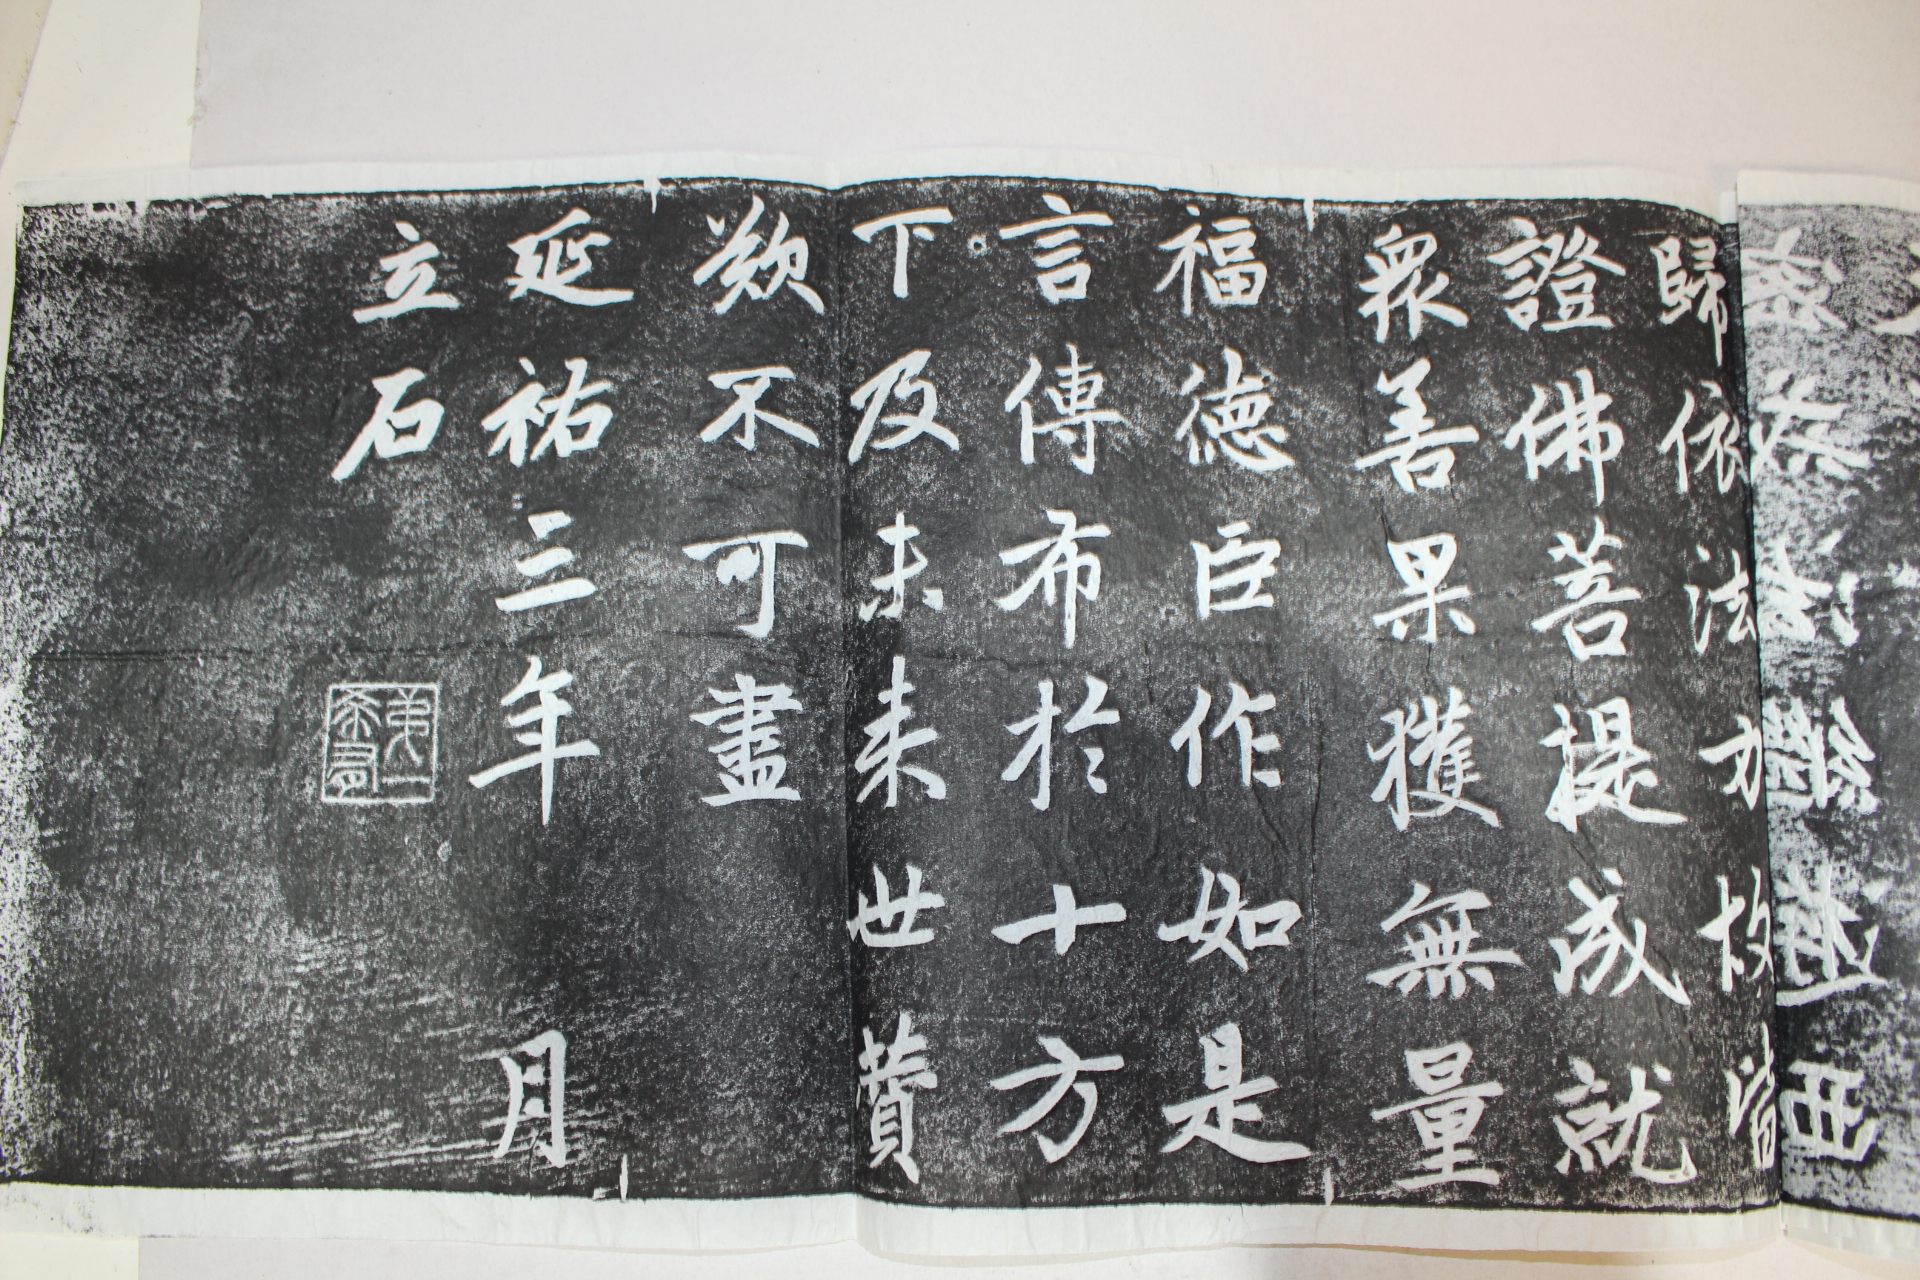 歸依法故皆
證佛菩提成就
衆善果獲無量
福德臣作如是
言傳布於十方
下及未来世賛
歎不可盡
延祐三年 月
立石
弟一希有